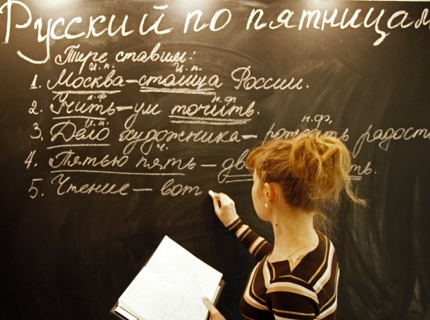 Русский по пятницам
Тире ставим:
И.п. И.п.
1. Москва–столица России.
н.ф. н.ф.
2. Учить–ум точить.
И.п. н.ф.
3. Дело художника– рождать радост
ч.
4. Пятью пять – дв ть.
5. Чтение – вот